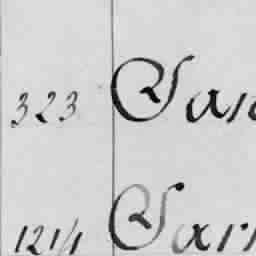 323 San
1211 Sarr